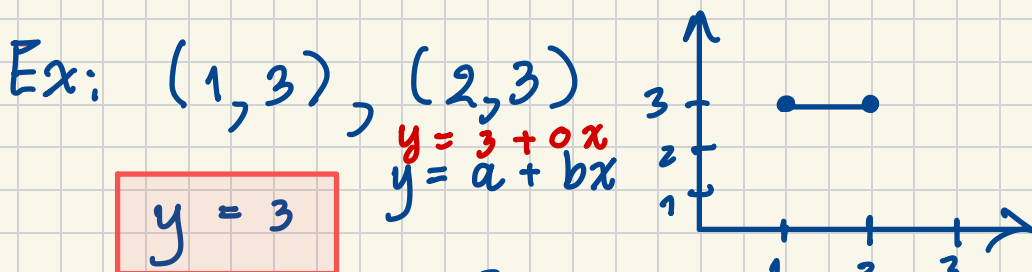 Ex: (1,3), (2,3)
y = 3 + 0x
y = a + bx
y = 3
3
2
1
1 2 3